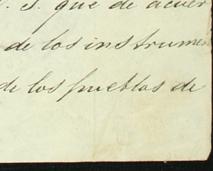 S. que de acuer
de los instrumen
de los pueblos de